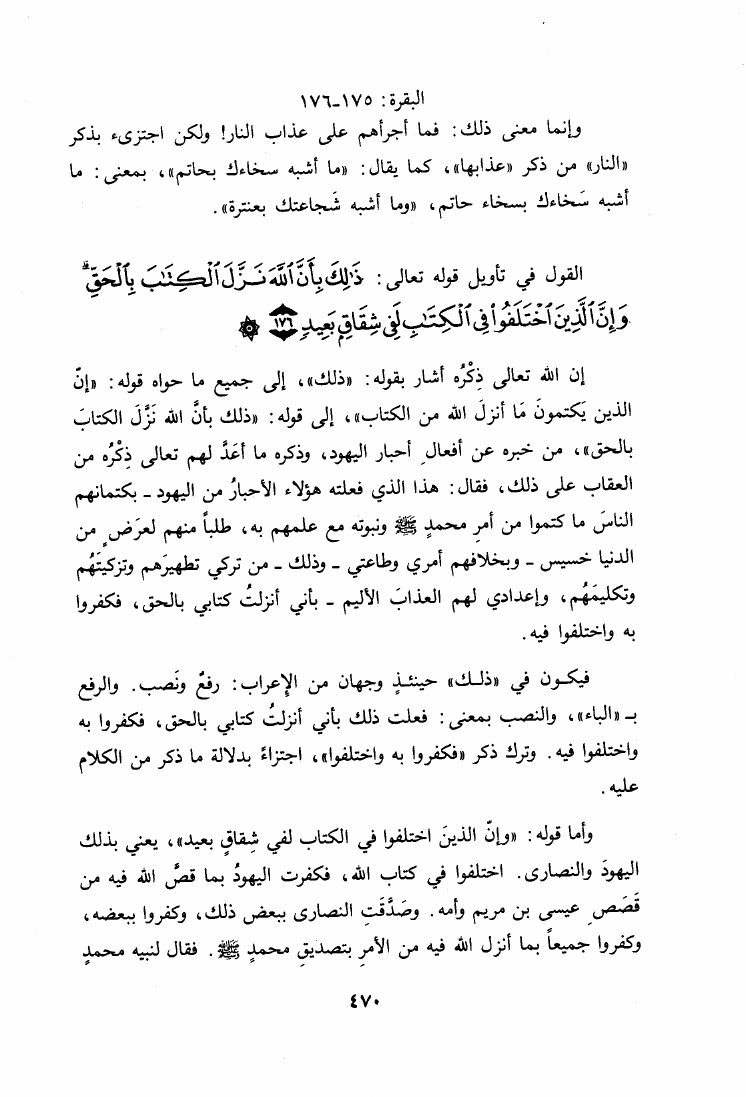 البقرة: ١٧٥-١٧٦
وإنما معنى ذلك: فما أجرأهم على عذاب النار! ولكن اجتزىء بذكر
«النار» من ذكر «عذابها»، كما يقال: «ما أشبه سخاءك بحاتم»، بمعنى: ما
أشبه سَخاءك بسخاء حاتم، «وما أشبه شَجاعتك بعنترة».
القول في تأويل قوله تعالى: ذَٰلِكَ بِأَنَّ ٱللَّهَ نَزَّلَ ٱلْكِتَٰبَ بِٱلْحَقِّ ۗ
وَإِنَّ ٱلَّذِينَ ٱخْتَلَفُوا۟ فِى ٱلْكِتَٰبِ لَفِى شِقَاقٍۭ بَعِيدٍ ١٧٦
إن الله تعالى ذِكْرُه أشار بقوله: «ذلك»، إلى جميع ما حواه قوله: «إنّ
الذين يَكتمونَ مَا أنزلَ الله من الكتاب»، إلى قوله: «ذلك بأنَّ الله نَزَّلَ الكتابَ
بالحق»، من خبره عن أفعالِ أحبار اليهود، وذكره ما أعَدَّ لهم تعالى ذِكْرُه من
العقاب على ذلك، فقال: هذا الذي فعلته هؤلاء الأحبارُ من اليهود ـ بكتمانهم
الناسَ ما كتموا من أمرِ محمدٍ ﷺ ونبوته مع علمهم به، طلباً منهم لعرَضٍ من
الدنيا خسيس ـ وبخلافهم أمري وطاعتي ـ وذلك ـ من تركي تطهيرَهم وتزكيتَهُم
وتكليمَهُم، وإعدادي لهم العذابَ الأليم ـ بأني أنزلتُ كتابي بالحق، فكفروا
به واختلفوا فيه.
فيكون في «ذلك» حينئذٍ وجهان من الإعراب: رفعٌ ونَصب. والرفع
بـ «الباء»، والنصب بمعنى: فعلت ذلك بأني أنزلتُ كتابي بالحق، فكفروا به
واختلفوا فيه. وترك ذكر «فكفروا به واختلفوا»، اجتزاءً بدلالة ما ذكر من الكلام
عليه.
وأما قوله: «وإنّ الذينَ اختلفوا في الكتاب لفي شِقاقٍ بعيد»، يعني بذلك
اليهودَ والنصارى. اختلفوا في كتاب الله، فكفرت اليهودُ بما قصَّ الله فيه من
قَصَصِ عيسى بن مريم وأمه. وصَدَّقَتِ النصارى ببعض ذلك، وكفروا ببعضه،
وكفروا جميعاً بما أنزل الله فيه من الأمرِ بتصديقِ محمدٍ ﷺ. فقال لنبيه محمدٍ
٤٧٠